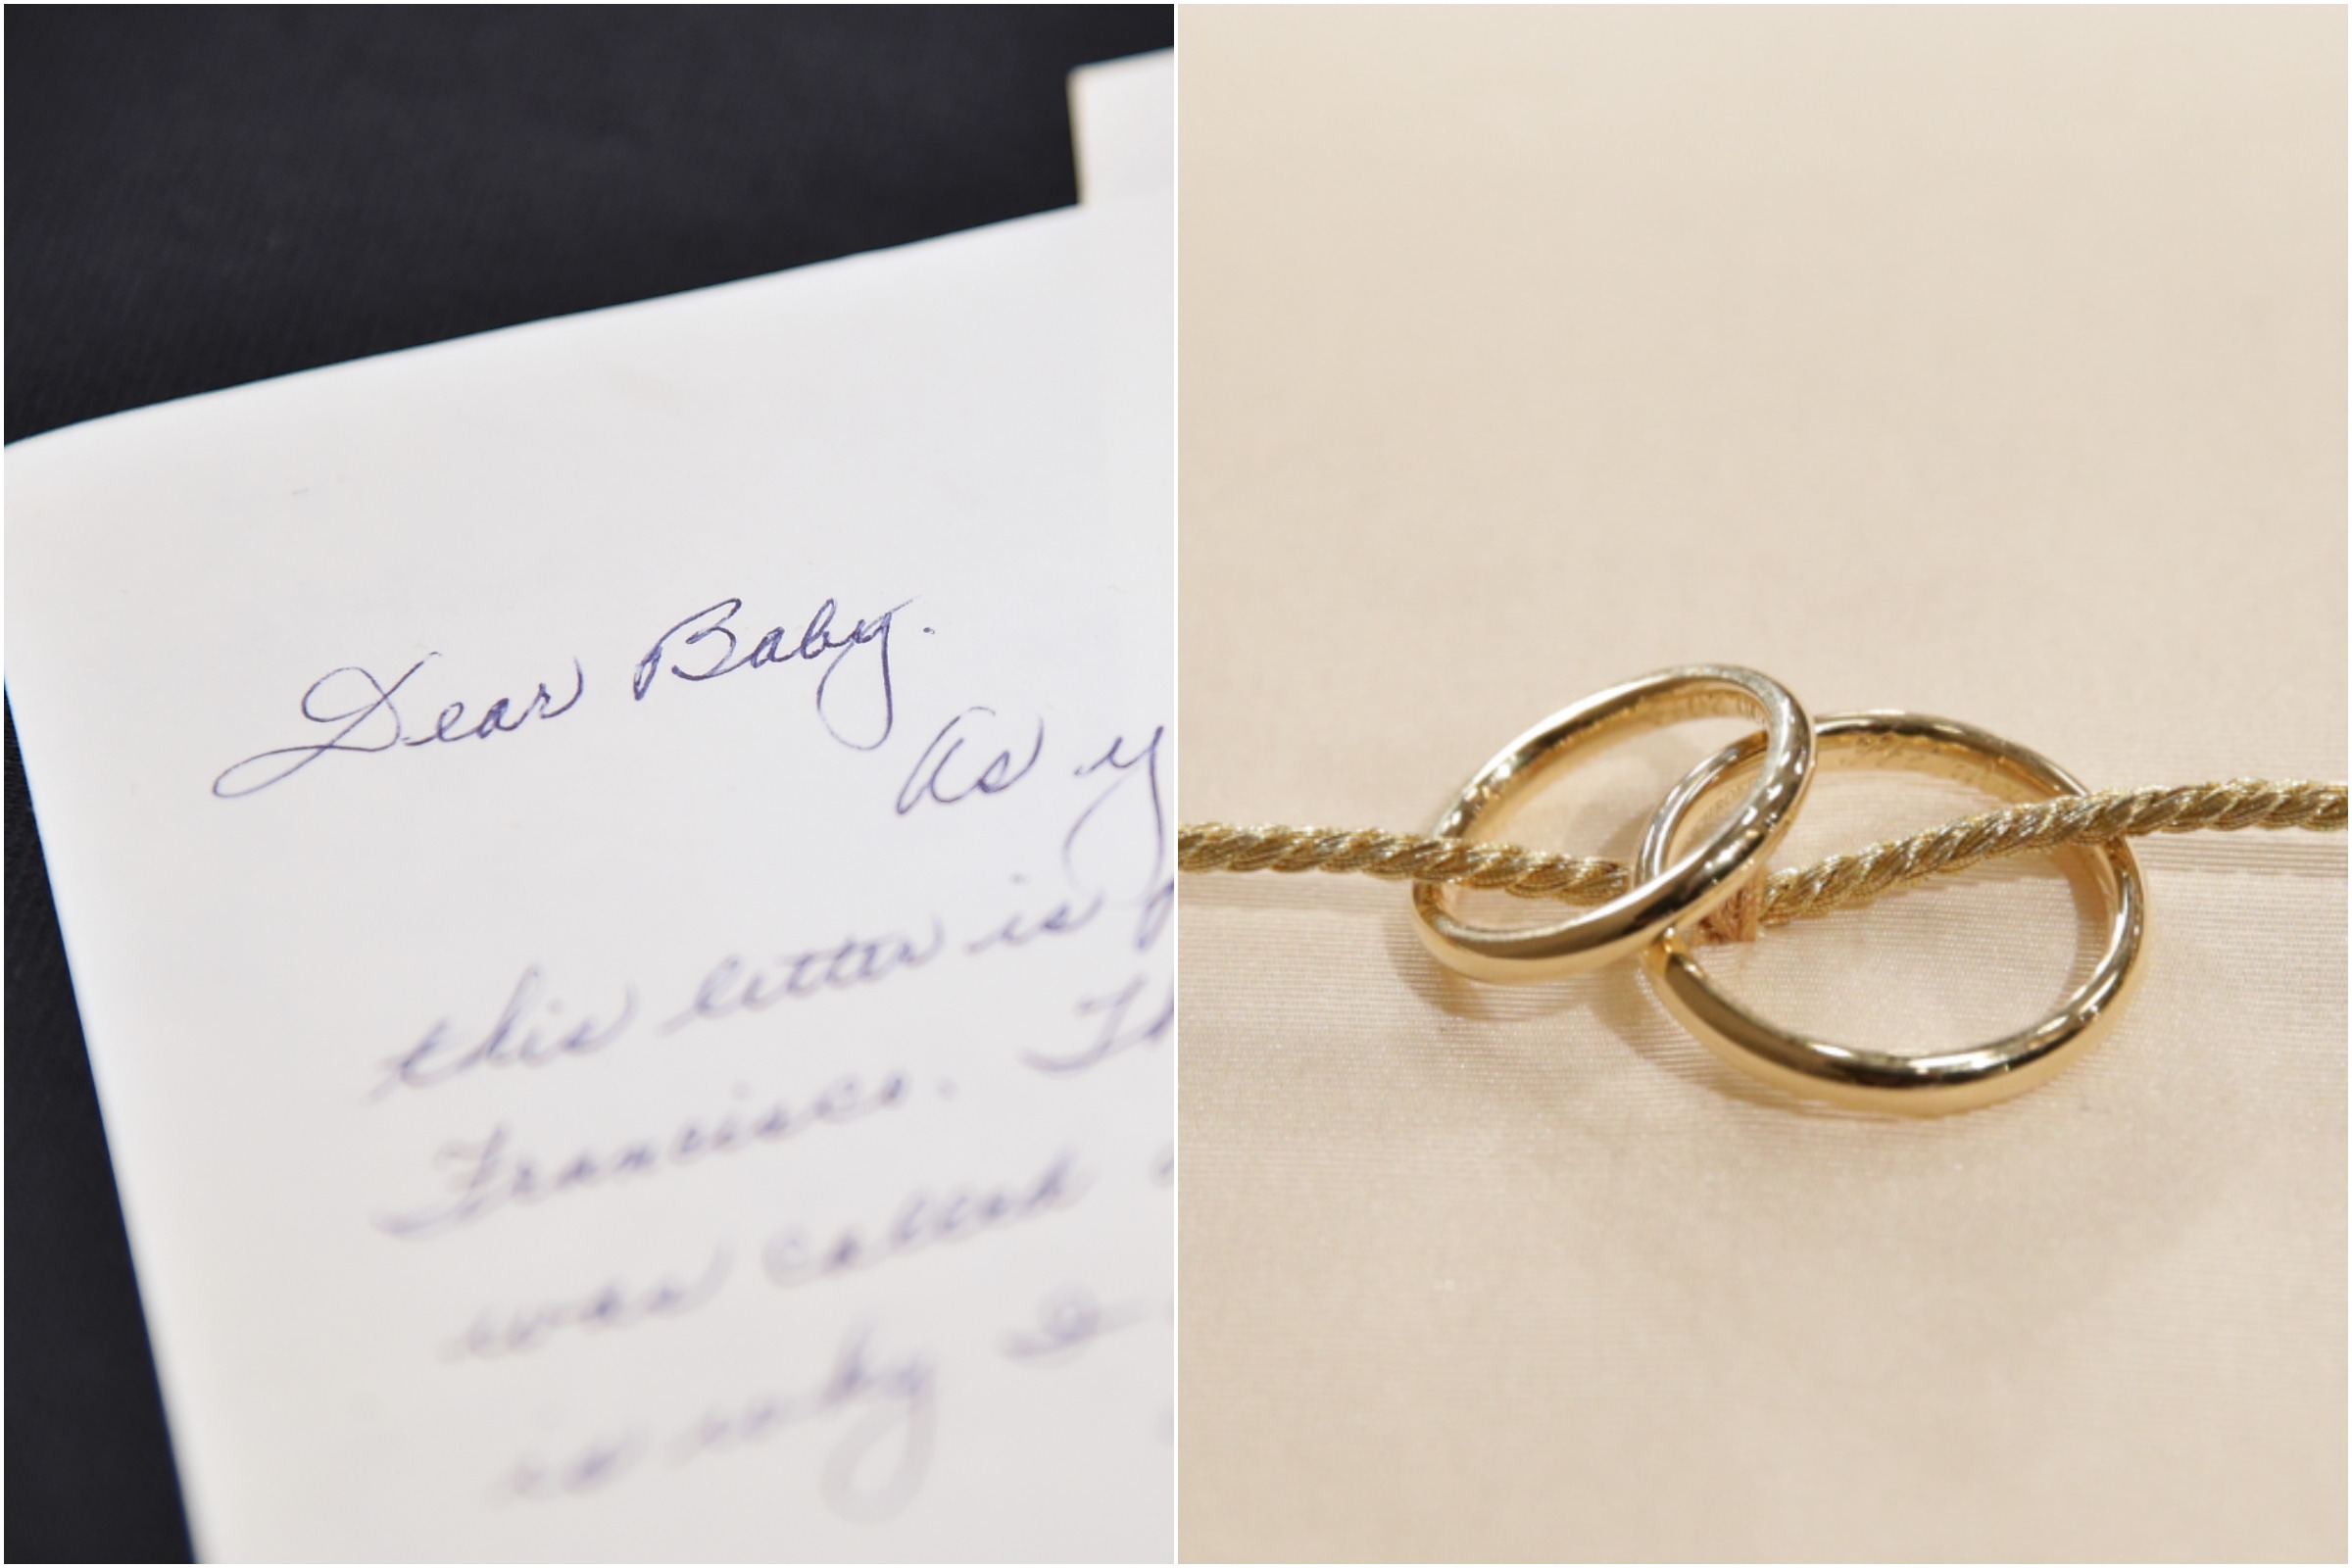 Dear Baby.
As y
this letter is
Francisco. Th
was called
is why I